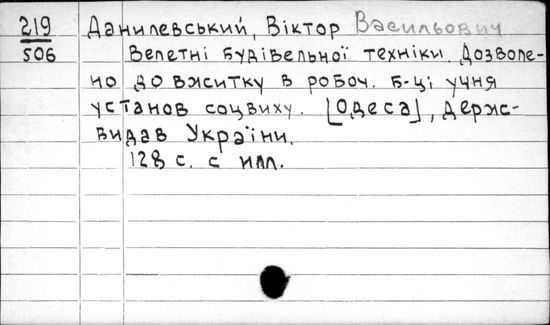 219 Данилевський, Віктор Васильович
506 Велетні будівельної техніки. Дозволе-
но до вжитку в робоч. б-ці учня
установ соцвиху. [Одеса], Держ-
видав України.
128 с. с илл.